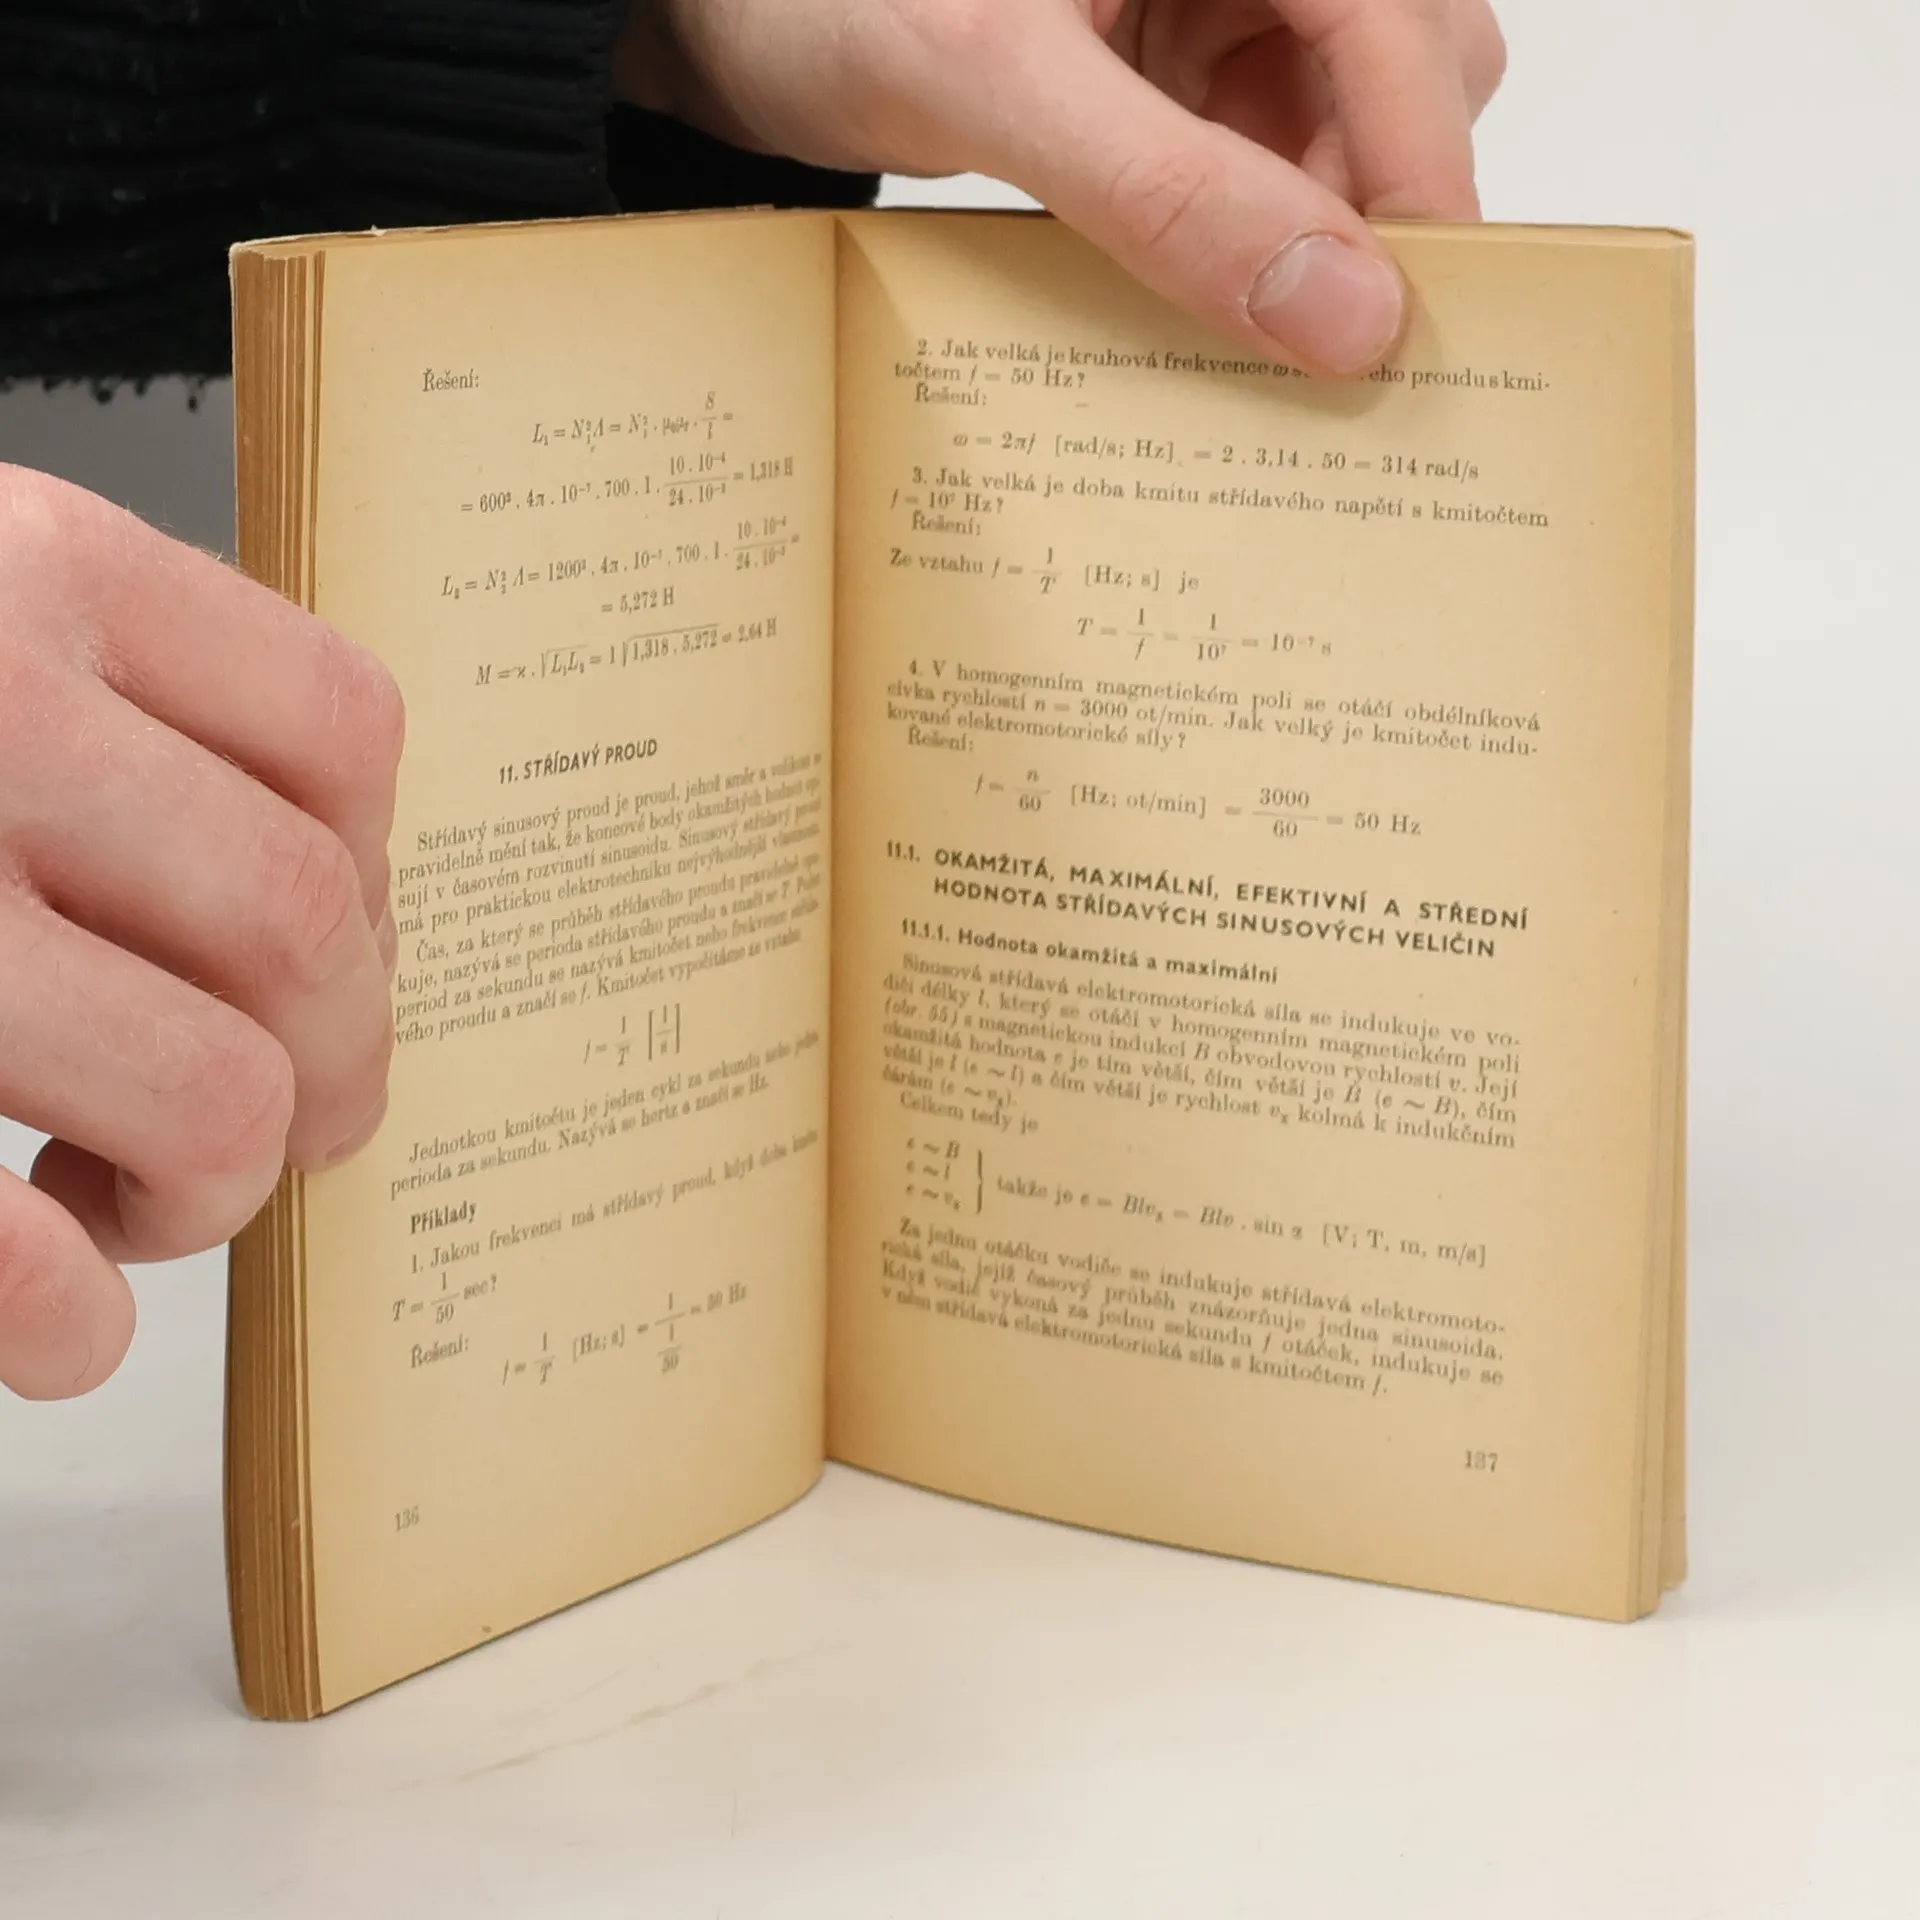 Řešení:
L₁ = N₁² Λ = N₁² . μ₀μᵣ . S/l =
= 600² . 4π . 10⁻⁷ . 700 . 1 . 10 . 10⁻⁴ / 24 . 10⁻² = 1,318 H
L₂ = N₂² Λ = 1200² . 4π . 10⁻⁷ . 700 . 1 . 10 . 10⁻⁴ / 24 . 10⁻² =
= 5,272 H
M = ϰ . √L₁L₂ = 1 √1,318 . 5,272 = 2,64 H
11. STŘÍDAVÝ PROUD
Střídavý sinusový proud je proud, jehož směr a velikost
pravidelně mění tak, že koncové body okamžitých hodnot
sují v časovém rozvinutí sinusoidu. Sinusový střídavý proud
má pro praktickou elektrotechniku nejvýhodnější
Čas, za který se průběh střídavého proudu pravidelně
kuje, nazývá se perioda střídavého proudu a značí se T. Počet
period za sekundu se nazývá kmitočet nebo frekvence
vého proudu a značí se f. Kmitočet vypočítáme ze vztahu
f = 1/T [1/s]
Jednotkou kmitočtu je jeden cykl za sekundu nebo jedna
perioda za sekundu. Nazývá se hertz a značí se Hz.
Příklady
1. Jakou frekvenci má střídavý proud, když doba kmitu
T = 1/50 sec?
Řešení:
f = 1/T [Hz; s] = 1/(1/50) = 50 Hz
136
2. Jak velká je kruhová frekvence ω eho proudu s kmi-
točtem f = 50 Hz?
Řešení:
ω = 2πf [rad/s; Hz] = 2 . 3,14 . 50 = 314 rad/s
3. Jak velká je doba kmitu střídavého napětí s kmitočtem
f = 10⁷ Hz?
Řešení:
Ze vztahu f = 1/T [Hz; s] je
T = 1/f = 1/10⁷ = 10⁻⁷ s
4. V homogenním magnetickém poli se otáčí obdélníková
cívka rychlostí n = 3000 ot/min. Jak velký je kmitočet indu-
kované elektromotorické síly?
Řešení:
f = n/60 [Hz; ot/min] = 3000/60 = 50 Hz
11.1. OKAMŽITÁ, MAXIMÁLNÍ, EFEKTIVNÍ A STŘEDNÍ
HODNOTA STŘÍDAVÝCH SINUSOVÝCH VELIČIN
11.1.1. Hodnota okamžitá a maximální
Sinusová střídavá elektromotorická síla se indukuje ve vo-
diči délky l, který se otáčí v homogenním magnetickém poli
(obr. 55) s magnetickou indukcí B obvodovou rychlostí v. Její
okamžitá hodnota e je tím větší, čím větší je B (e ~ B), čím
větší je l (e ~ l) a čím větší je rychlost vₓ kolmá k indukčním
čárám (e ~ vₓ).
Celkem tedy je
e ~ B
e ~ l
e ~ vₓ
} takže je e = Blvₓ = Blv . sin α [V; T, m, m/s]
Za jednu otáčku vodiče se indukuje střídavá elektromoto-
rická síla, jejíž časový průběh znázorňuje jedna sinusoida.
Když vodič vykoná za jednu sekundu f otáček, indukuje se
v něm střídavá elektromotorická síla s kmitočtem f.
137